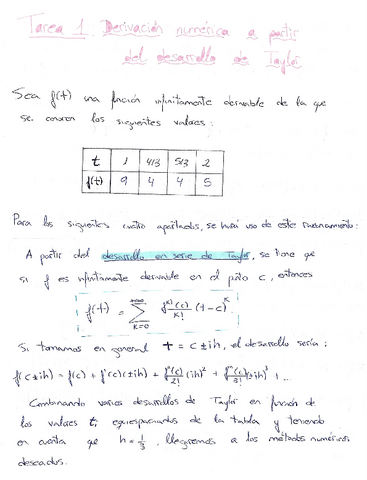 Tarea 1. Derivación numérica a partir
del desarrollo de Taylor
Sea f(t) una función infinitamente derivable de la que
se conocen los siguientes valores:
t 1 4/3 5/3 2
f(t) 9 4 4 5
Para los siguientes cuatro apartados, se hará uso de este razonamiento:
A partir del desarrollo en serie de Taylor, se tiene que
si f es infinitamente derivable en el pto c, entonces
f(t) = ∑_{k=0}^{+∞} f^{k)}(c)/k! (t-c)^k
Si tomamos en general t = c ± ih, el desarrollo sería:
f(c±ih) = f(c) + f'(c)(±ih) + f''(c)/2! (ih)² + f'''(c)/3! (±ih)³ + ...
Combinando varios desarrollos de Taylor en función de
los valores t_i equiespaciados de la tabla y teniendo
en cuenta que h = 1/3, llegaremos a los métodos numéricos
deseados.